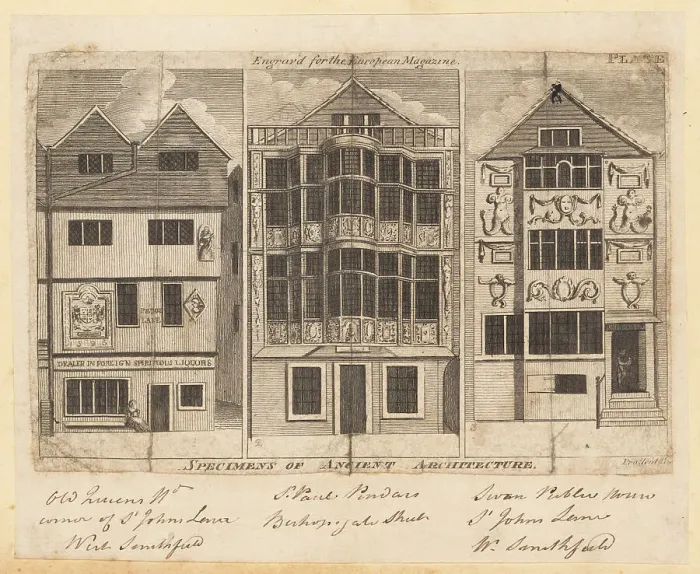 Engrav'd for the European Magazine.
PLATE
DEALER IN FOREIGN SPIRITUOUS LIQUORS
SPECIMENS OF ANCIENT ARCHITECTURE.
Old Queens Hd
corner of St Johns Lane
West Smithfield
Sr Paul Pindars
Bishopsgate Street
Swan Public House
St Johns Lane
W. Smithfield